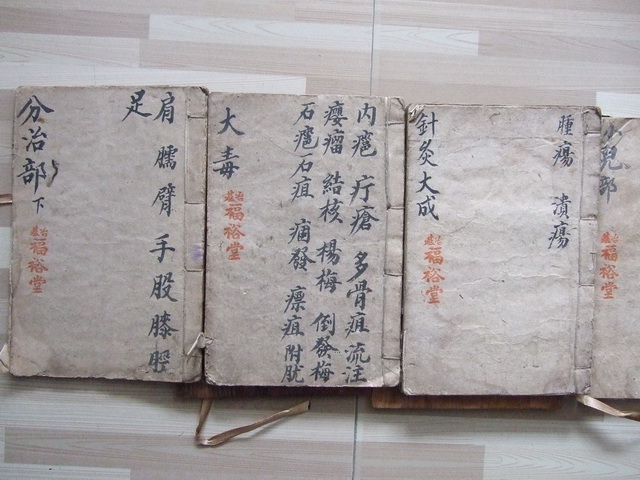 肩臑臂手股膝脛
足
分治部下
福裕堂
内癰 疔瘡 多骨疽 流注
癭瘤 結核 楊梅 倒發梅
石癰石疽 痼發 瘭疽 附
大毒
福裕堂
腫瘍 潰瘍
針灸大成
福裕堂
兒部
福裕堂